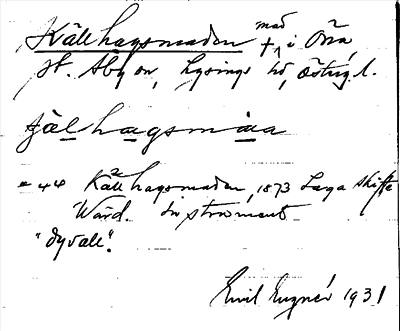 mad
Källhagsmaden + i Öna,
st. Aby sn, Lysings hd, Östergl.
tjälhagsmaa
Källhagsmaden, 1873 Laga skifte
Wärd. Instrument
"dyvall".
Emil Eugnér 1931